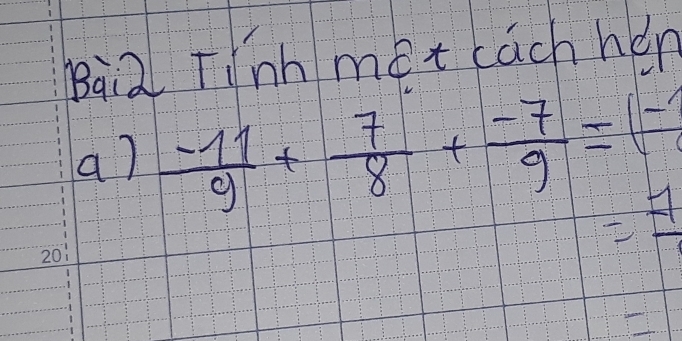 Bài 2 Tính một cách
a) -11/9 + 7/8 + -7/9 = (
=
20
=